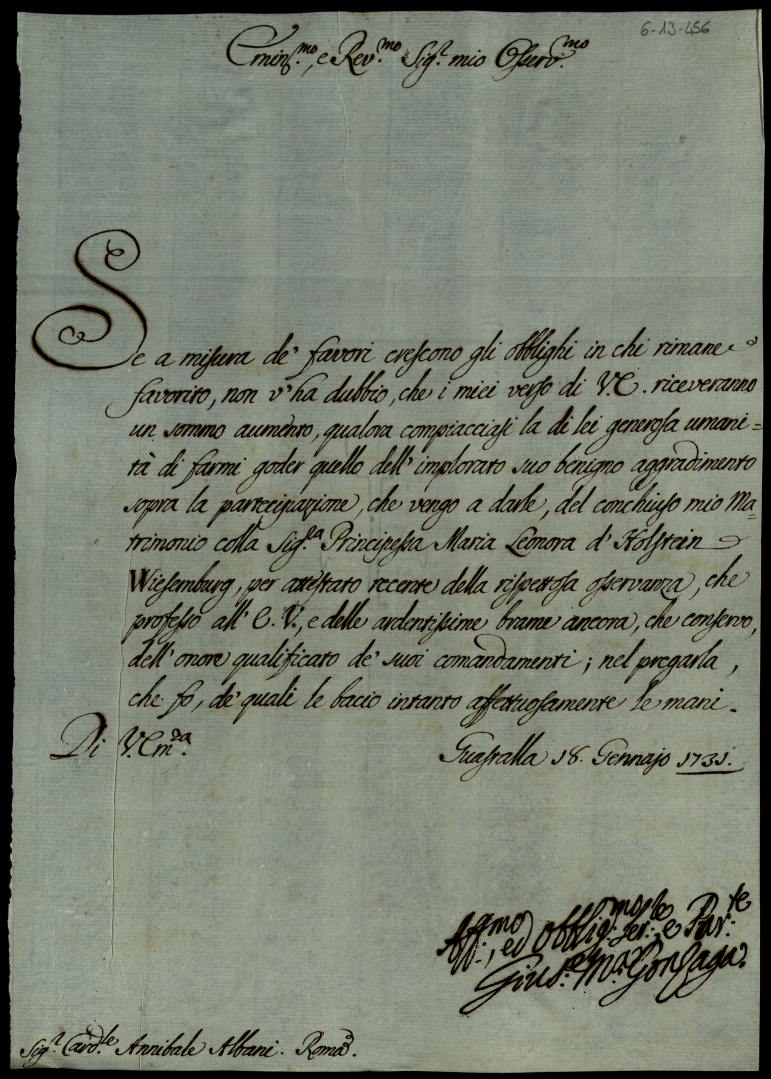 6-13-456
Emin.mo, e Rev.mo Sig.r mio Osserv.mo
Se a misura de' favori crescono gli obblighi in chi rimane
favorito, non v'ha dubbio, che i miei verso di V.E. riceveranno
un sommo aumento, qualora compiacciasi la di lei generosa umani=
tà di farmi goder quello dell'implorato suo benigno aggradimento
sopra la partecipazione, che vengo a darle, del conchiuso mio Ma=
trimonio colla Sig.ra Principessa Maria Leonora d'Holstein
Wiesemburg, per attestato recente della rispettosa osservanza, che
professo all'E.V., e delle ardentissime brame ancora, che conservo,
dell'onore qualificato de' suoi comandamenti; nel pregarla,
che fò, de' quali le bacio intanto affettuosamente le mani.
Di V. Em.za
Guastalla 18. Gennajo 1731.
Aff.mo, ed obblig.mo Ser.re e Par.te
Gius.e M.a Gonzaga.
Sig.r Card.le Annibale Albani. Roma.